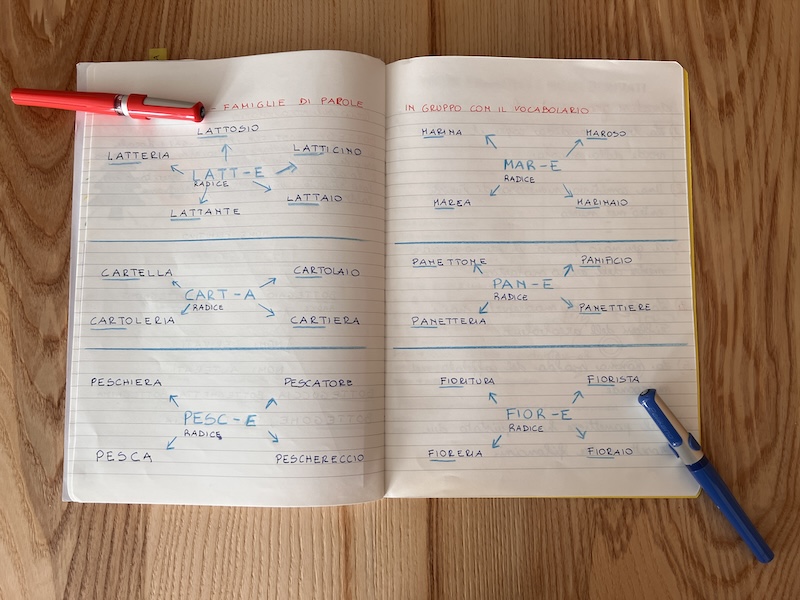 - FAMIGLIE DI PAROLE
LATTOSIO
LATTERIA
LATTICINO
LATT-E
RADICE
LATTANTE
LATTAIO
CARTELLA
CARTOLAIO
CART-A
RADICE
CARTOLERIA
CARTIERA
PESCHIERA
PESCATORE
PESC-E
RADICE
PESCA
PESCHERECCIO
IN GRUPPO CON IL VOCABOLARIO
MARINA
MAROSO
MAR-E
RADICE
MAREA
MARINAIO
PANETTONE
PANIFICIO
PAN-E
RADICE
PANETTERIA
PANETTIERE
FIORITURA
FIORISTA
FIOR-E
RADICE
FIORERIA
FIORAIO